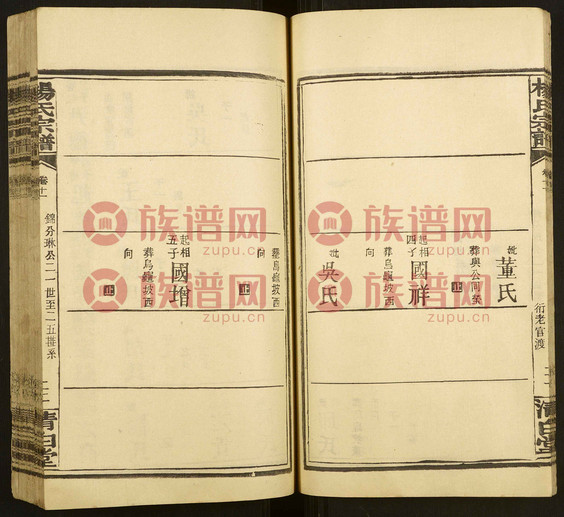 楊氏宗譜
卷十一
衍老官渡
清白堂
妣
董氏
葬與公同塋
止
起相
四子
國祥
葬烏嶺坡西
向
止
妣
吳氏
葬烏嶺坡西
向
止
起相
五子
國增
葬烏嶺坡西
向
止
楊氏宗譜
卷十一
錦分琳公二一世至二五世系
清白堂
族谱网
zupu.cn
族谱网
zupu.cn
族谱网
zupu.cn
族谱网
zupu.cn